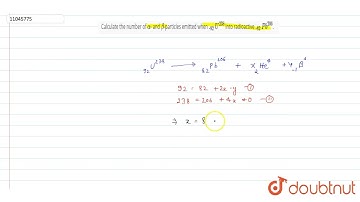 11045775
Calculate the number of α- and β-particles emitted when ₉₂U²³⁸ into radioactive ₈₂Pb²⁰⁶.
₉₂U²³⁸ ⟶ ₈₂Pb²⁰⁶ + x ₂He⁴ + y ₋₁β⁰
92 = 82 + 2x - y - ①
238 = 206 + 4x + 0 - ②
⇒ x = 8
doubtnut